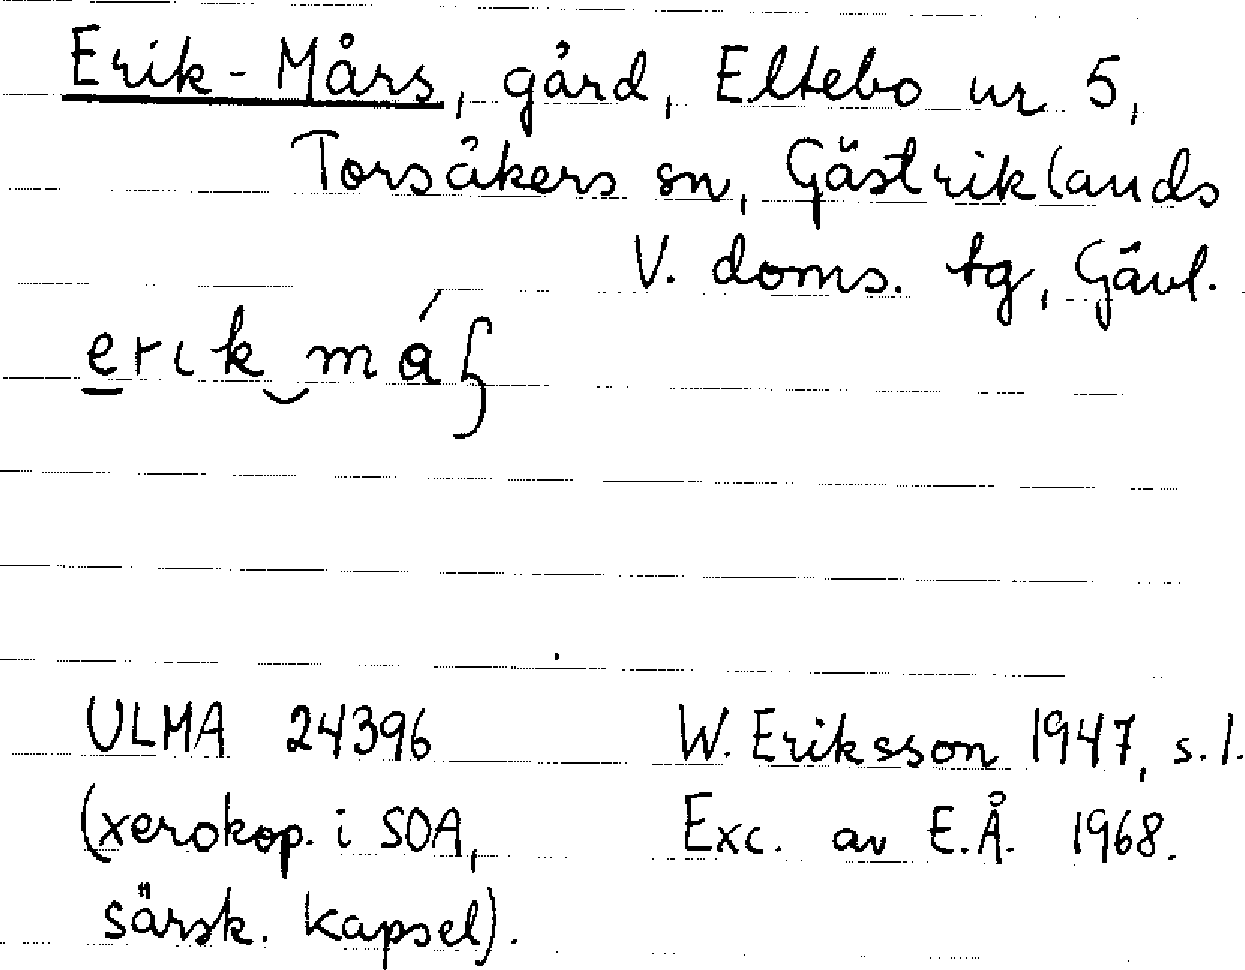 Erik-Mårs, gård, Eltebo nr 5,
Torsåkers sn, Gästriklands
V. doms. tg, Gävl.
erik
ULMA 24396
W. Eriksson 1947, s. 1.
(xerokop. i SOA,
Exc. av E.Å. 1968.
särsk. kapsel).